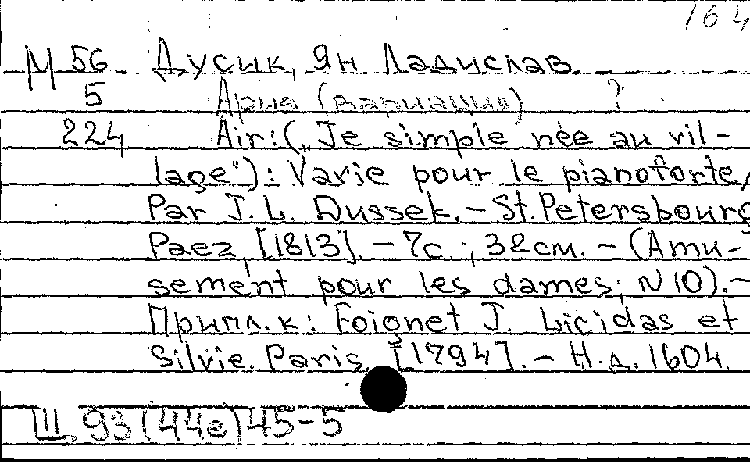 164
М 56 Дусик, Ян Ладислав
5 Ария (вариации) ?
224 Air: („Je simple née au vil-
lage"): Varie pour le pianoforte,
Par J. L. Dussek. – St. Petersbourg
Paez, [1813]. – 7с.; 32см. – (Amu-
sement pour les dames; N 10). –
Припл. к: Foignet J. Licidas et
Silvie. Paris, [1794]. – Н.д. 1604.
Ш 93(44е)45-5